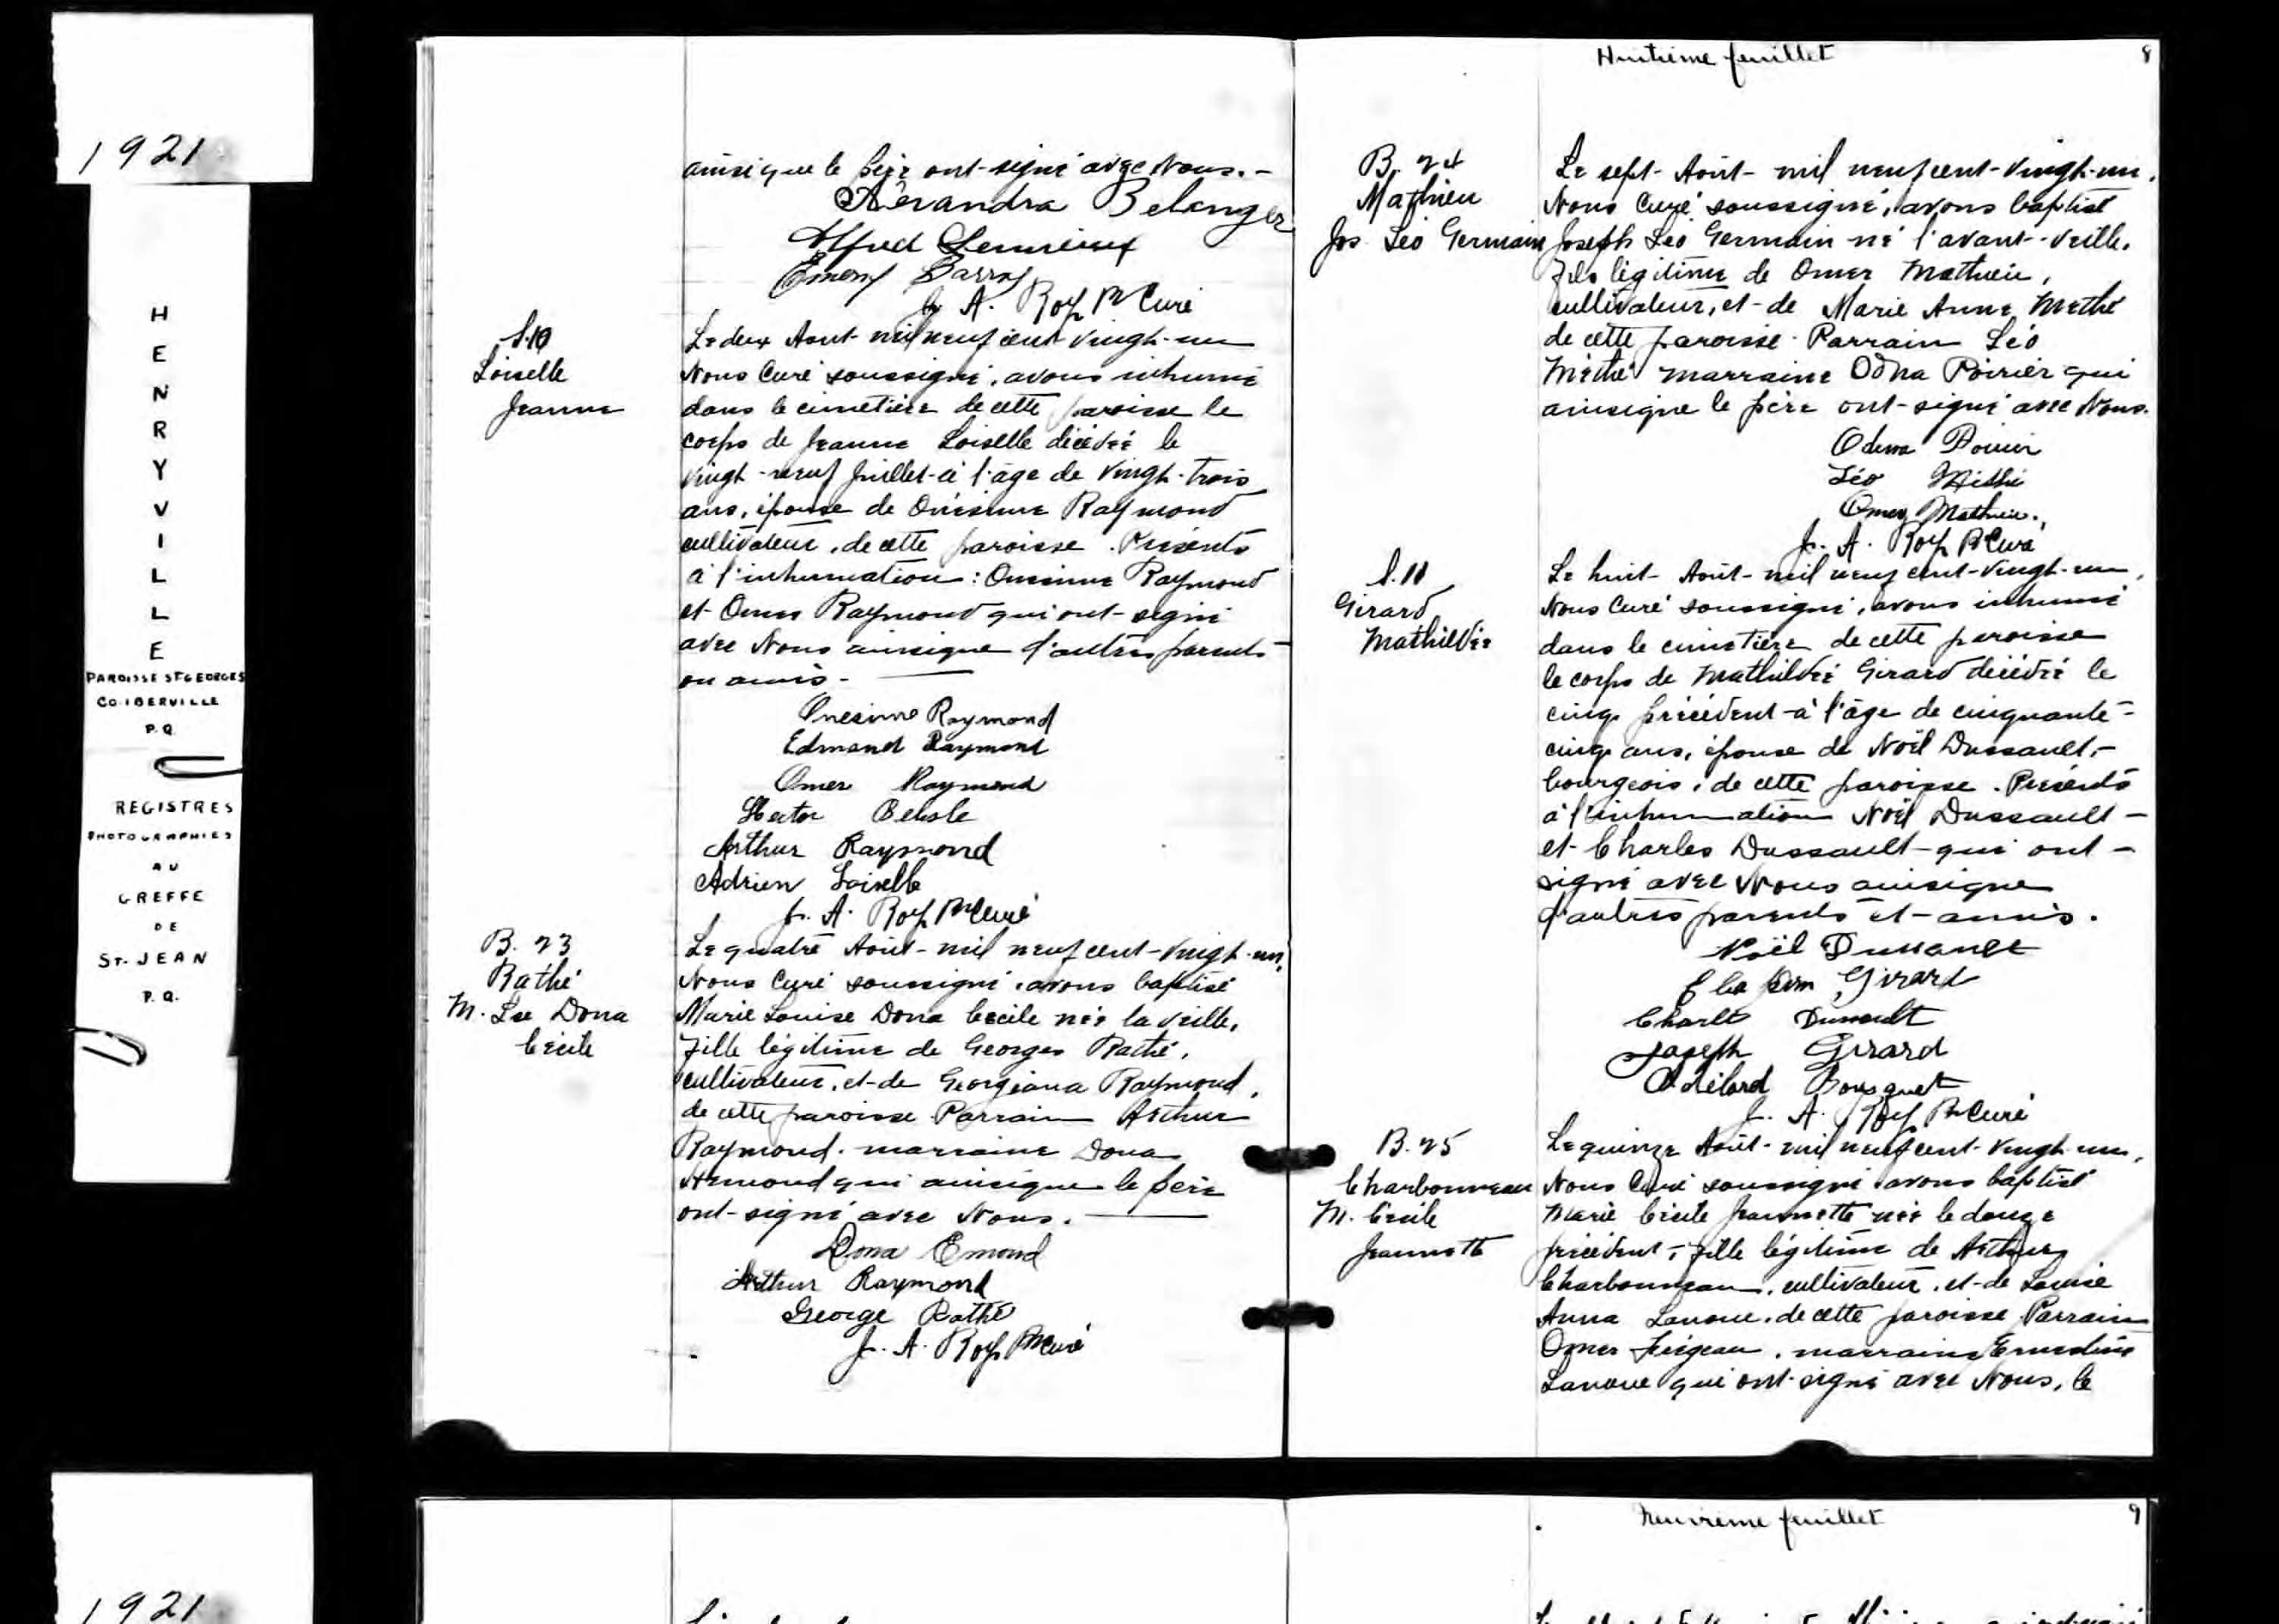 1921
H
E
N
R
Y
V
I
L
L
E
PAROISSE ST GEORGES
CO. IBERVILLE
P.Q.
REGISTRES
PHOTOGRAPHIES
AU
GREFFE
DE
ST. JEAN
P.Q.
ainsi que le père ont signé avec Nous. -
Belanger
Alfred Lemieux
Emery
J. A. Roy Ptr Curé
S.10
Loiselle
Jeanne
Le deux Aout mil neuf cent vingt-un
Nous Curé soussigné, avons inhumé
dans le cimetière de cette paroisse le
corps de Jeanne Loiselle décédée le
vingt-neuf Juillet à l'âge de vingt-trois
ans, épouse de Onésime Raymond
cultivateur, de cette paroisse. Présents
à l'inhumation : Onésime Raymond
et Omer Raymond qui ont signé
avec Nous ainsique d'autres parents
ou amis -
Onesime Raymond
Edmond Raymond
Omer Raymond
Hector Belisle
Arthur Raymond
Adrien Loiselle
J. A. Roy Ptr Curé
B. 23
Rathé
M. Lse Dona
Cécile
Le quatre Août - mil neuf cent-vingt-un,
Nous Curé soussigné, avons baptisé
Marie Louise Dona Cécile née la veille,
fille légitime de Georges Rathé,
cultivateur, et de Georgiana Raymond,
de cette paroisse Parrain Arthur
Raymond. marraine Dona
qui ainsique le père
ont-signé avec Nous.
Dona Emond
Arthur Raymond
George Rathé
J. A. Roy Ptr Curé
Huitième feuillet
8
B. 24
Mathieu
Jos Léo Germain
Le sept Août - mil neuf cent-vingt-un,
Nous Curé soussigné, avons baptisé
Joseph Léo Germain né l'avant-veille,
fils légitime de Omer Mathieu,
cultivateur, et de Marie Anne Méthé
de cette paroisse. Parrain Léo
Méthé marraine Odna Poirier qui
ainsique le père ont-signé avec Nous.
Odena Poirier
Léo Méthé
Omer Mathieu.
J. A. Roy Ptr Curé
S.11
Girard
Mathildée
Le huit Août - mil neuf cent-vingt-un,
Nous Curé soussigné, avons inhumé
dans le cimetière de cette paroisse
le corps de Mathildée Girard décédée le
cinq précédent à l'âge de cinquante-
cinq ans, épouse de Noël Dussault,
bourgeois, de cette paroisse. Présents
à l'inhumation Noël Dussault -
et Charles Dussault qui ont -
signé avec Nous ainsique
d'autres parents et amis.
Noël Dussault
Girard
Dussault
Joseph Girard
Bousquet
J. A. Roy Ptr Curé
B. 25
Charbonneau
M. Cécile
Jeannette
Le quinze Août - mil neuf cent-vingt-un,
Nous Curé soussigné avons baptisé
Marie Cécile Jeannette née le douze
précédent, fille légitime de Arthur
Charbonneau, cultivateur, et de Louise
Anna Lanoue, de cette paroisse Parrain
Omer marraine Ernestine
Lanoue qui ont-signé avec Nous, le
1921
Neuvième feuillet
9